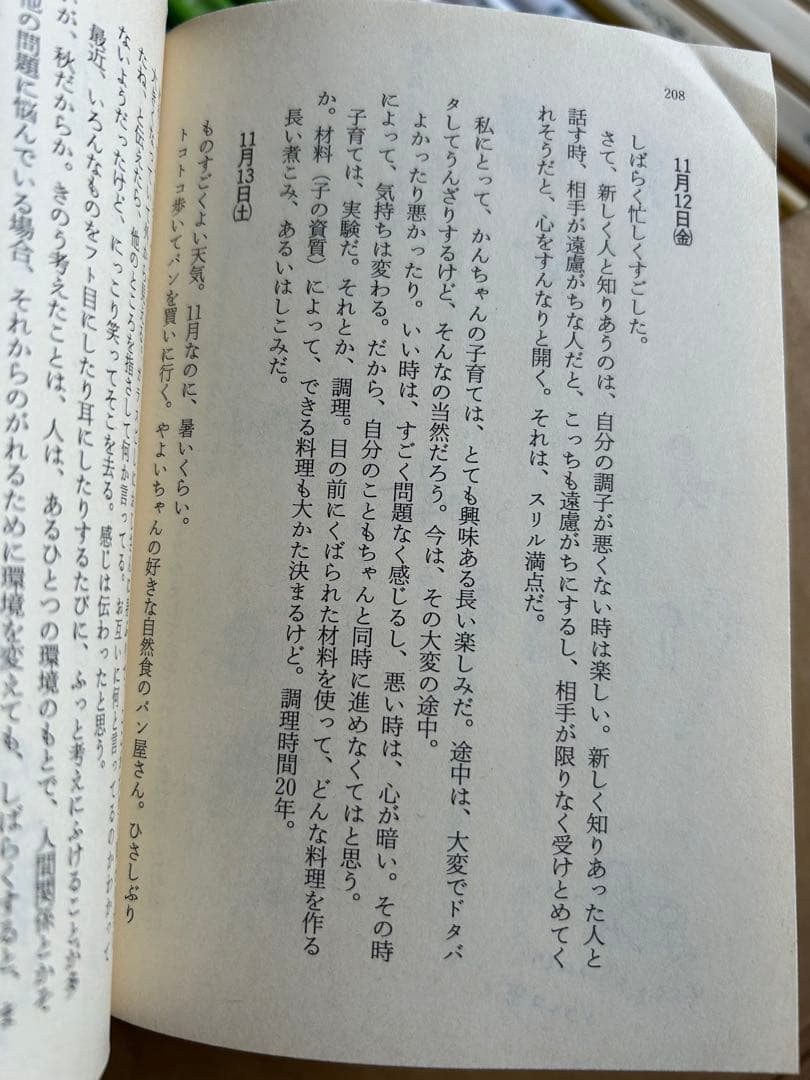 208
11月12日㊎
しばらく忙しくすごした。
さて、新しく人と知りあうのは、自分の調子が悪くない時は楽しい。新しく知りあった人と
話す時、相手が遠慮がちな人だと、こっちも遠慮がちにするし、相手が限りなく受けとめてく
れそうだと、心をすんなりと開く。それは、スリル満点だ。
私にとって、かんちゃんの子育ては、とても興味ある長い楽しみだ。途中は、大変でドタバ
タしてうんざりするけど、そんなの当然だろう。今は、その大変の途中。
よかったり悪かったり。いい時は、すごく問題なく感じるし、悪い時は、心が暗い。その時
によって、気持ちは変わる。だから、自分のこともちゃんと同時に進めなくてはと思う。
子育ては、実験だ。それとか、調理。目の前にくばられた材料を使って、どんな料理を作る
か。材料（子の資質）によって、できる料理も大かた決まるけど。調理時間20年。
長い煮こみ、あるいはしこみだ。
11月13日㊏
ものすごくよい天気。11月なのに、暑いくらい。
トコトコ歩いてパンを買いに行く。やよいちゃんの好きな自然食のパン屋さん。ひさしぶり
たね、と伝えたら、他のところを指さして何か言ってる。お互いに何と言ってるのかわからく
ないようだったけど、にっこり笑ってそこを去る。感じは伝わったと思う。
最近、いろんなものをフト目にしたり耳にしたりするたびに、ふっと考えにふけることが多
が、秋だからか。きのう考えたことは、人は、あるひとつの環境のもとで、人間関係とかそ
他の問題に悩んでいる場合、それからのがれるために環境を変えても、しばらくすると、ま